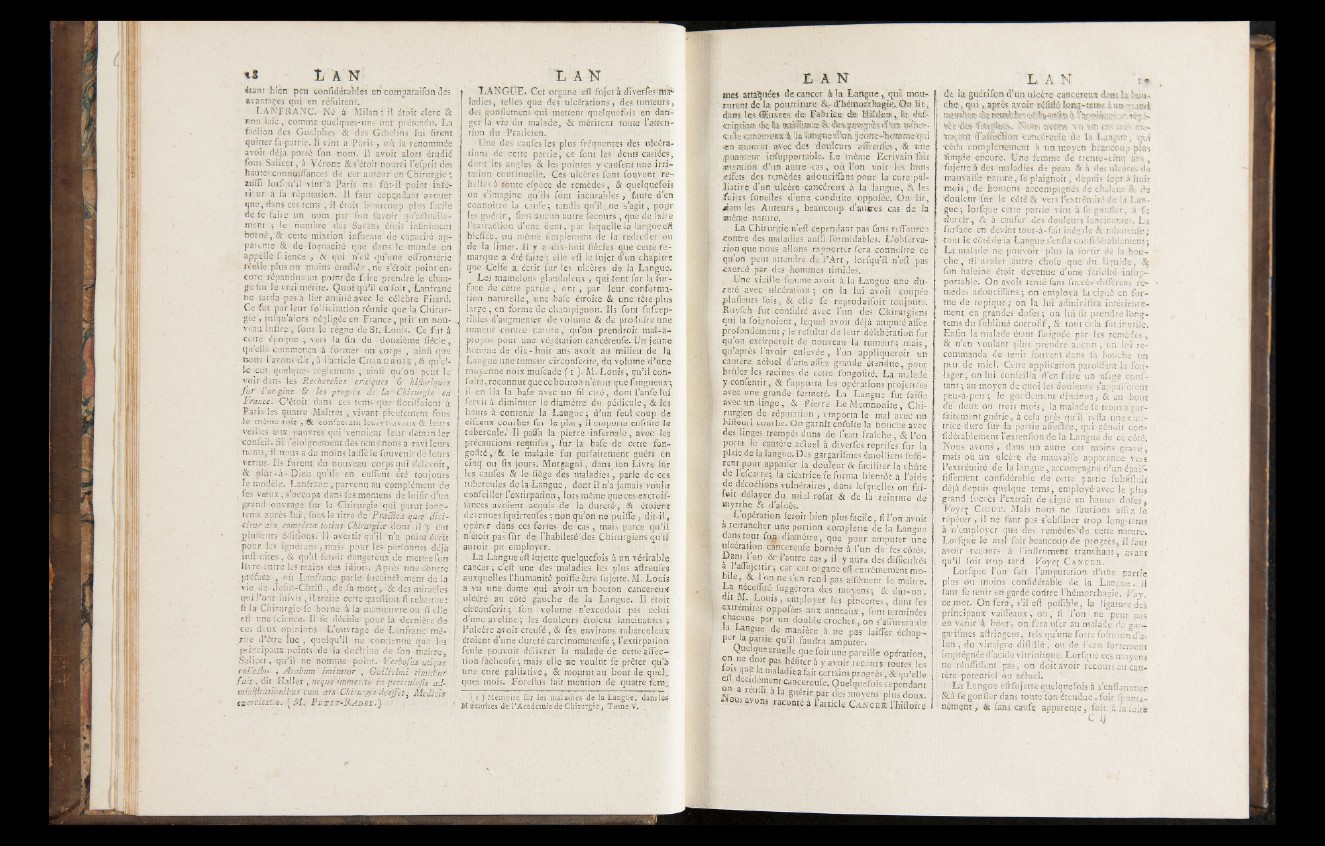 18 LAN
étant bien peu considérables en comparaison des
avantages qui en résultent.
LANFRANC. Né à Milan ; il étoit clerc &
non laïc, comme quelques-uns ont prétendu. La
faction des Guelphes & des Gibelins lui firent
quitter sa patrie. Il vint à Paris, où la renommée
avoit déja porté son nom. Il avoit alors étudié
sous Salicet, à Vérone & s'étoit nourri l'esprit des
hautes connoissances de cet auteur en Chirurgie ;
aussi lorsqu'il vint à Paris ne fût-il point infé-
rieur à sa réputation. Il faut cependant avouer
que, dans ces tems, il étoit beaucoup plus facile
de se faire un nom par son savoir qu'actuelle-
ment ; le nombre des Savans étoit infiniment
borné, & cette mixtion informe de capacité ap-
parente & de loquacité que dans le monde on
appelle science, & qui n'est qu'une effronterie
réelle plus ou moins étudiée, ne s'étoit point en-
core répandue au point de faire prendre le chan-
ge sur le vrai mérite. Quoi qu'il en soit, Lanfranc
ne tarda pas à lier amitié avec le célèbre Pitard.
Ce fut par leur sollicitation réunie que la Chirur-
gie, jusqu'alors négligée en France, prit un nou-
veau lustre, sous le règne de St. Louis. Ce fut à
cette époque, vers la fin du douzième siècle,
qu'elle commença à former un corps, ainsi que
nous l'avons dit, à l'article CHIRURGIE, & qu'el-
le eut quelques réglemens, ainsi qu'on peut le
voir dans les Recherches critiques & historiques
sur l'origine & les progrès de la Chirurgie en
France. C'étoit dans ces tems que florissoient à
Paris les quatre Maîtres, vivant pieusement sous
le même toit, & consacrant leurs travaux & leurs
veilles aux pauvres qui venoient leur demander
conseil. Si l'éloignement des tems nous a ravi leurs
noms, il nous a du moins laissé le souvenir de leurs
vertus. Ils furent du nouveau corps qui s'élevoit,
& plût-à-Dieu qu'ils en eussent été toujours
le modèle. Lanfranc, parvenu au complément de
ses vœux, s'occupa dans ses momens de loisir d'un
grand ouvrage sur la Chirurgie qui parut long-
tems après lui, sous le titre de Practica quæ dici-
tur ars completa totius Chirurgiæ dont il y eut
plusieurs éditions. Il avertit qu'il n'a point écrit
pour les ignorans, mais pour les personnes déjà
instruites, & qu'il seroit dangereux de mettre son
livre entre les mains des idiots. Après une courte
préface, où Lanfranc parle succinctement de la
vie de Jesus-Christ, de sa mort, & des miracles
qui l'ont suivis, il traite cette question si rebattue :
si la Chirurgie se borne à la manœuvre ou si elle
est une science. Il se décide pour la dernière de
ces deux opinions. L'ouvrage de Lanfranc mé-
rite d'être lu, quoiqu'il ne contienne que les
principaux points de la doctrine de son maître,
Salicet, qu'il ne nomme point. Verbosus utique
collector, Arabum imitator, Guilielmi timidior
fuit, dit Haller, neque immerito in periculosis ad-
ministrationibus cum ars Chirurgiæ deesset, Medicis
exercitatio. (M. PETIT-RADEL.)
LAN
LANGUE. Cet organe est sujet à diverses ma-
ladies, telles que des ulcérations, des tumeurs,
des gonflemens qui mettent quelquefois en dan-
ger la vie du malade, & méritent toute l'atten-
tion du Praticien.
Une des causes les plus fréquentes des ulcéra-
tions de cette partie, ce sont les dents cariées,
dont les angles & les pointes y causent une irri-
tation continuelle. Ces ulcères sont souvent re-
belles à toute espèce de remèdes, & quelquefois
on s'imagine qu'ils sont incurables, faute d'en
connoître la cause ; tandis qu'il ne s'agit, pour
les guérir, sans aucun autre secours, que de faire
l'extraction d'une dent, par laquelle la langue est
blessée, ou même simplement de la redresser ou
de la limer. Il y a dix-huit siècles que cette re-
marque a été faite : elle est le sujet d'un chapitre
que Celse a écrit sur les ulcères de la Langue.
Les mamelons glanduleux, qui sont sur la sur-
face de cette partie, ont, par leur conforma-
tion naturelle, une base étroite & une tête plus
large, en forme de champignon. Ils sont suscep-
tibles d'augmenter de volume & de produire une
tumeur contre nature, qu'on prendroit mal-à-
propos pour une végétation cancéreuse. Un jeune
homme de dix-huit ans avoit au milieu de la
Langue une tumeur circonscrite, du volume d'une
moyenne noix muscade (1). M. Louis, qu'il con-
sulta, reconnut que ce bouton n'étoit que fongueux ;
il en lia la base avec un fil ciré, dont l'anse lui
servit à diminuer le diamètre du pédicule, & les
bouts à contenir la Langue ; d'un seul coup de
ciseaux courbes sur le plat, il emporta ensuite le
tubercule. Il passa la pierre infernale, avec les
précautions requises, sur la base de cette fon-
gosité, & le malade fut parfaitement guéri en
cinq ou six jours. Morgagni, dans son Livre sur
les causes & le siége des maladies, parle de ces
tubercules de la Langue, dont il n'a jamais voulu
conseiller l'extirpation, lors même que ces excrois-
sances avoient acquis de la dureté, & étoient
devenues squirreuses ; non qu'on ne puisse, dit-il,
opérer dans ces sortes de cas, mais parce qu'il
n'étoit pas sûr de l'habileté des Chirurgiens qu'il
auroit pu employer.
La Langue est sujette quelquefois à un véritable
cancer, c'est une des maladies les plus affreuses
auxquelles l'humanité puisse être sujette. M. Louis
a vu une dame qui avoit un bouton cancereux
ulcéré au côté gauche de la Langue. Il étoit
circonscrit ; son volume n'excédoit pas celui
d'une aveline ; les douleurs étoient lancinantes ;
l'ulcère avoit creusé, & ses environs tuberculeux
étoient d'une dureté carcinomateuse ; l'extirpation
seule pouvoit délivrer la malade de cette affec-
tion fâcheuse ; mais elle ne voulut se prêter qu'à
une cure palliative, & mourut au bout de quel-
ques mois. Forestus fait mention de quatre fem-
(1) Mémoire sur les maladies de la Langue, dans les
Mémoires de l'Académie de Chirurgie, Tome V.
LAN
mes attaquées de cancer à la Langue, qui mou-
rurent de la pourriture & d'hémorrhagie. On lit,
dans les Œuvres de Fabrice de Hildem, la des-
cription de la naissance & des progrès d'un tuber-
cule cancereux à la langue d'un jeune-homme qui
en mourut avec des douleurs affreuses, & une
puanteur insupportable. Le même Ecrivain fait
mention d'un autre cas, où l'on voit les bons
effets des remèdes adoucissans pour la cure pal-
liative d'un ulcère cancéreux à la langue, & les
suites funestes d'une conduite opposée. On lit,
dans les Auteurs, beaucoup d'autres cas de la
même nature.
La Chirurgie n'est cependant pas sans ressource
contre des maladies aussi formidables. L'observa-
tion que nous allons rapporter fera connoître ce
qu'on peut attendre de l'Art, lorsqu'il n'est pas
exercé par des hommes timides.
Une vieille femme avoit à la Langue une du-
reté avec ulcération ; on la lui avoit coupée
plusieurs fois, & elle se reproduisoit toujours.
Ruysch fut consulté avec l'un des Chirurgiens
qui la soignoient, lequel avoit déjà amputé assez
profondément ; le résultat de leur délibération fut
qu'on extirperoit de nouveau la tumeur ; mais,
qu'après l'avoir enlevée, l'on appliqueroit un
cautère actuel d'une assez grande étendue, pour
brûler les racines de cette fongosité. La malade
y consentit, & supporta les opérations projetées
avec une grande fermeté. La Langue fut saisie
avec un linge, & Pierre Le Memnonite, Chi-
rurgien de réputation, emporta le mal avec un
bistouri courbe. On garnit ensuite la bouche avec
des linges trempés dans de l'eau fraîche, & l'on
porta le cautère actuel à diverses reprises sur la
plaie de la langue. Des gargarismes émolliens suffi-
rent pour appaiser la douleur & faciliter la chûte
de l'escarre ; la cicatrice se forma bientôt à l'aide
de décoctions vulnéraires, dans lesquelles on fai-
soit délayer du miel rosat & de la teinture de
myrrhe & d'aloès.
L'opération seroit bien plus facile, si l'on avoit
à retrancher une portion complette de la Langue
dans tout son diamètre, que pour amputer une
ulcération cancereuse bornée à l'un de ses côtés.
Dans l'un & l'autre cas, il y aura des difficultés
à l'assujettir ; car cet organe est extrêmement mo-
bile, & l'on ne s'en rend pas aisément le maître.
La nécessité suggérera des moyens ; & du-on,
dit M. Louis, employer les pincettes, dont les
extrémités opposées aux anneaux, sont terminées
chacune par un double crochet, on s'assurera de
la Langue de manière à ne pas laisser échap-
per la partie qu'il faudra amputer.
Quelque cruelle que soit une pareille opération,
on ne doit pas hésiter à y avoir recours toutes les
fois que la maladie a fait certains progrès, & qu'elle
est décidément cancereuse. Quelquefois cependant
on a réussi à la guérir par des moyens plus doux.
Nous avons raconté à l'article CANCER l'histoire
LAN 19
de la guérison d'un ulcère cancereux dans la bou-
che, qui, après avoir résisté long-tems à un grand
céda complettement à un moyen beaucoup plus
simple encore. Une femme de trente-cinq ans,
sujette à des maladies de peau & à des ulcères de
mauvaise nature, se plaignoit, depuis sept à huit
mois, de boutons accompagnés de chaleur & de
douleur sur le côté & vers l'extrémité de la Lan-
gue ; lorsque cette partie vint à se gonfler, à se
durcir, & à causer des douleurs lancinantes. La
surface en devint tout-à-fait inégale & raboteuse ;
tout le côté de la Langue s'enfla considérablement ;
La malade ne pouvoit plus la sortir de la bou-
che, ni avaler autre chose que du liquide, &
son haleine étoit devenue d'une fétidité insup-
portable. On avoit tenté sans succès différens re-
medes adoucissans ; on employa la ciguë en for-
me de topique ; on la lui administra intérieure-
ment en grandes doses ; on lui fit prendre long-
tems du sublimé corrosif, & tout cela fut inutile.
Enfin la malade étant fatiguée par les remèdes,
& n'en voulant plus prendre aucun, on lui re-
commanda de tenir souvent dans la bouche un
peu de miel. Cette application paroissant la sou-
lager, on lui conseilla d'en faire un usage cons-
tant ; au moyen de quoi les douleurs s'appaisèrent
peu-à-peu ; le gonflement diminua, & au bout
de deux ou trois mois, la malade se trouva par-
faitement guérie, à cela près qu'il resta une cica-
trice dure sur la partie affectée, qui gênoit con-
sidérablement l'extension de la Langue de ce côté.
Nous avons, dans un autre cas moins grave,
mais où un ulcère de mauvaise apparence vers
l'extrémité de la langue, accompagné d'un épais-
sissement considérable de cette partie subsistoit
déjà depuis quelque tems, employé avec le plus
grand succès l'extrait de ciguë en hautes doses,
Voyez CIGUE. Mais nous ne saurions assez le
répéter, il ne faut pas s'obstiner trop long-tems
à n'employer que des remèdes de cette nature.
Lorsque le mal fait beaucoup de progrès, il faut
avoir recours à l'instrument tranchant, avant
qu'il soit trop tard. Voyez CANCER.
Lorsque l'on fait l'amputation d'une partie
plus ou moins considérable de la Langue, il
faut se tenir en garde contre l'hémorrhagie. Voy.
ce mot. On fera, s'il est possible, la ligature des
principaux vaisseaux, ou, si l'on ne peut pas
en venir à bout, on fera user au malade de gar-
garismes astringens, tels qu'une forte solution d'a-
lun, du vinaigre distillé, ou de l'eau fortement
imprégnée d'acide vitriolique. Lorsque ces moyens
ne réussissent pas, on doit avoir recours au cau-
tère potentiel ou actuel.
La Langue est sujette quelquefois à s'enflammer
& à se gonfler dans toute son étendue, soit sponta-
nément, & sans cause apparente, soit à la suite
C ij